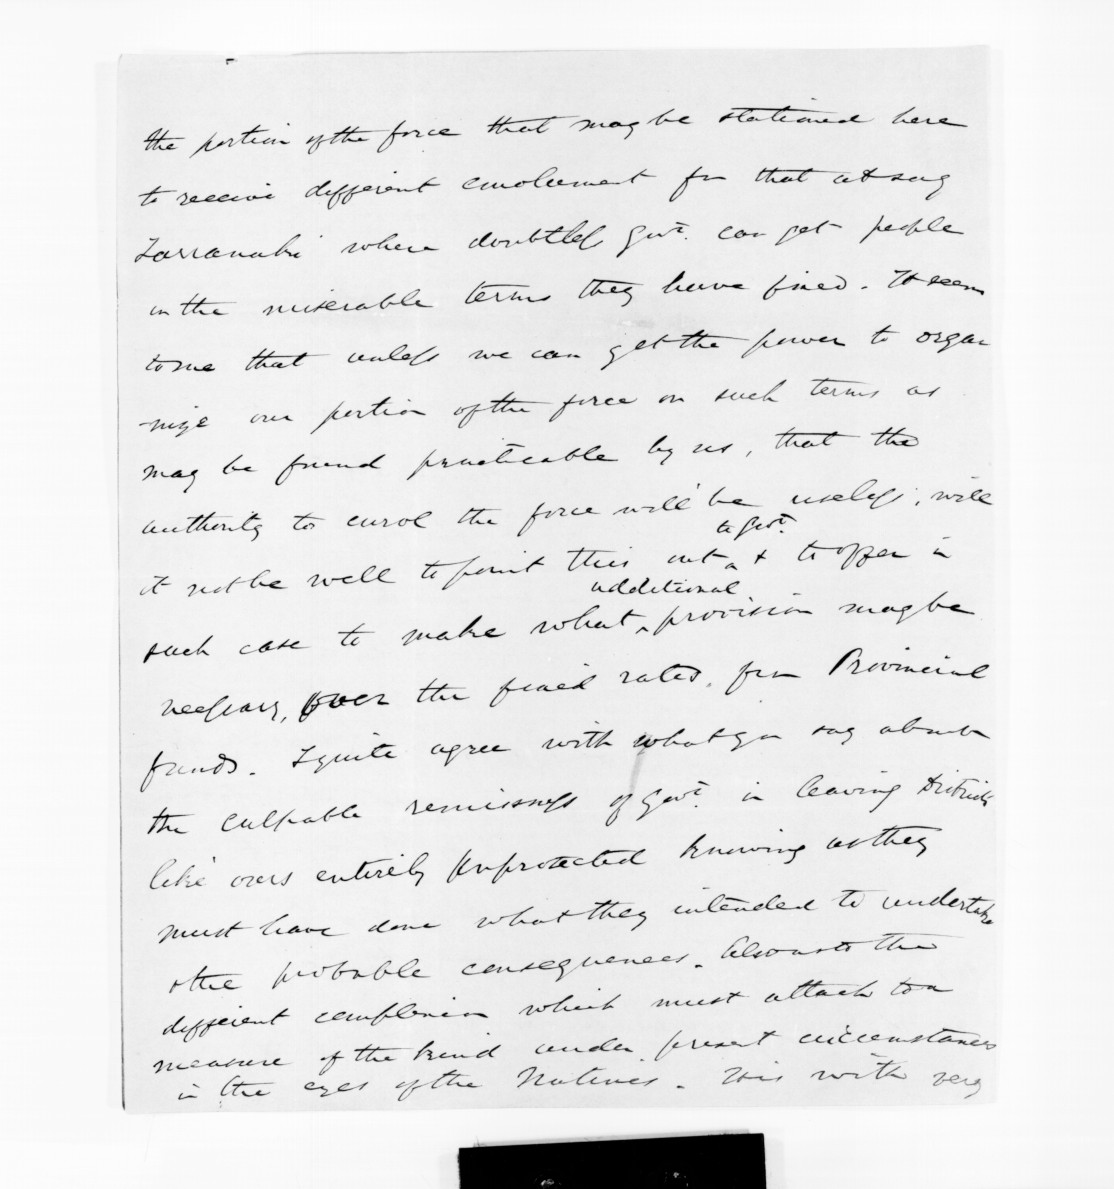 the portion of the force that may be stationed here
to receive different emolument from that at say
Tarranaki where doubtless Govt. can get people
on the miserable terms they have fixed. It seems
to me that unless we can get the power to orga
nize our portion of the force on such terms as
may be found practicable by us, that the
authority to enrol the force will be useless, will
to Govt.
it not be well to point this out & to offer in
additional
such case to make what provision may be
necessary, over the fixed rates, from Provincial
funds. I quite agree with what you say about
the culpable remissness of Govt. in leaving Districts
like ours entirely unprotected knowing as they
must have done what they intended to undertake
& the probable consequences. Also as to the
different complexion which must attach to a
measure of the kind under present circumstances
in the eyes of the Natives. It is with very